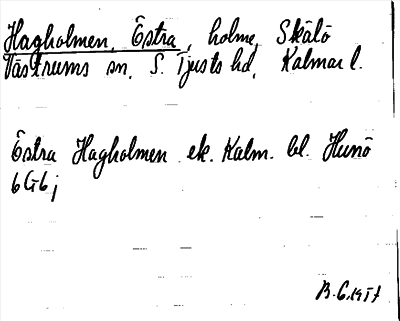 Hagholmen, Östra, holme, Skälö
Västrums sn, S. Tjusts hd, Kalmar l.
Östra Hagholmen ek. Kalm. bl. Hunö
6G6j